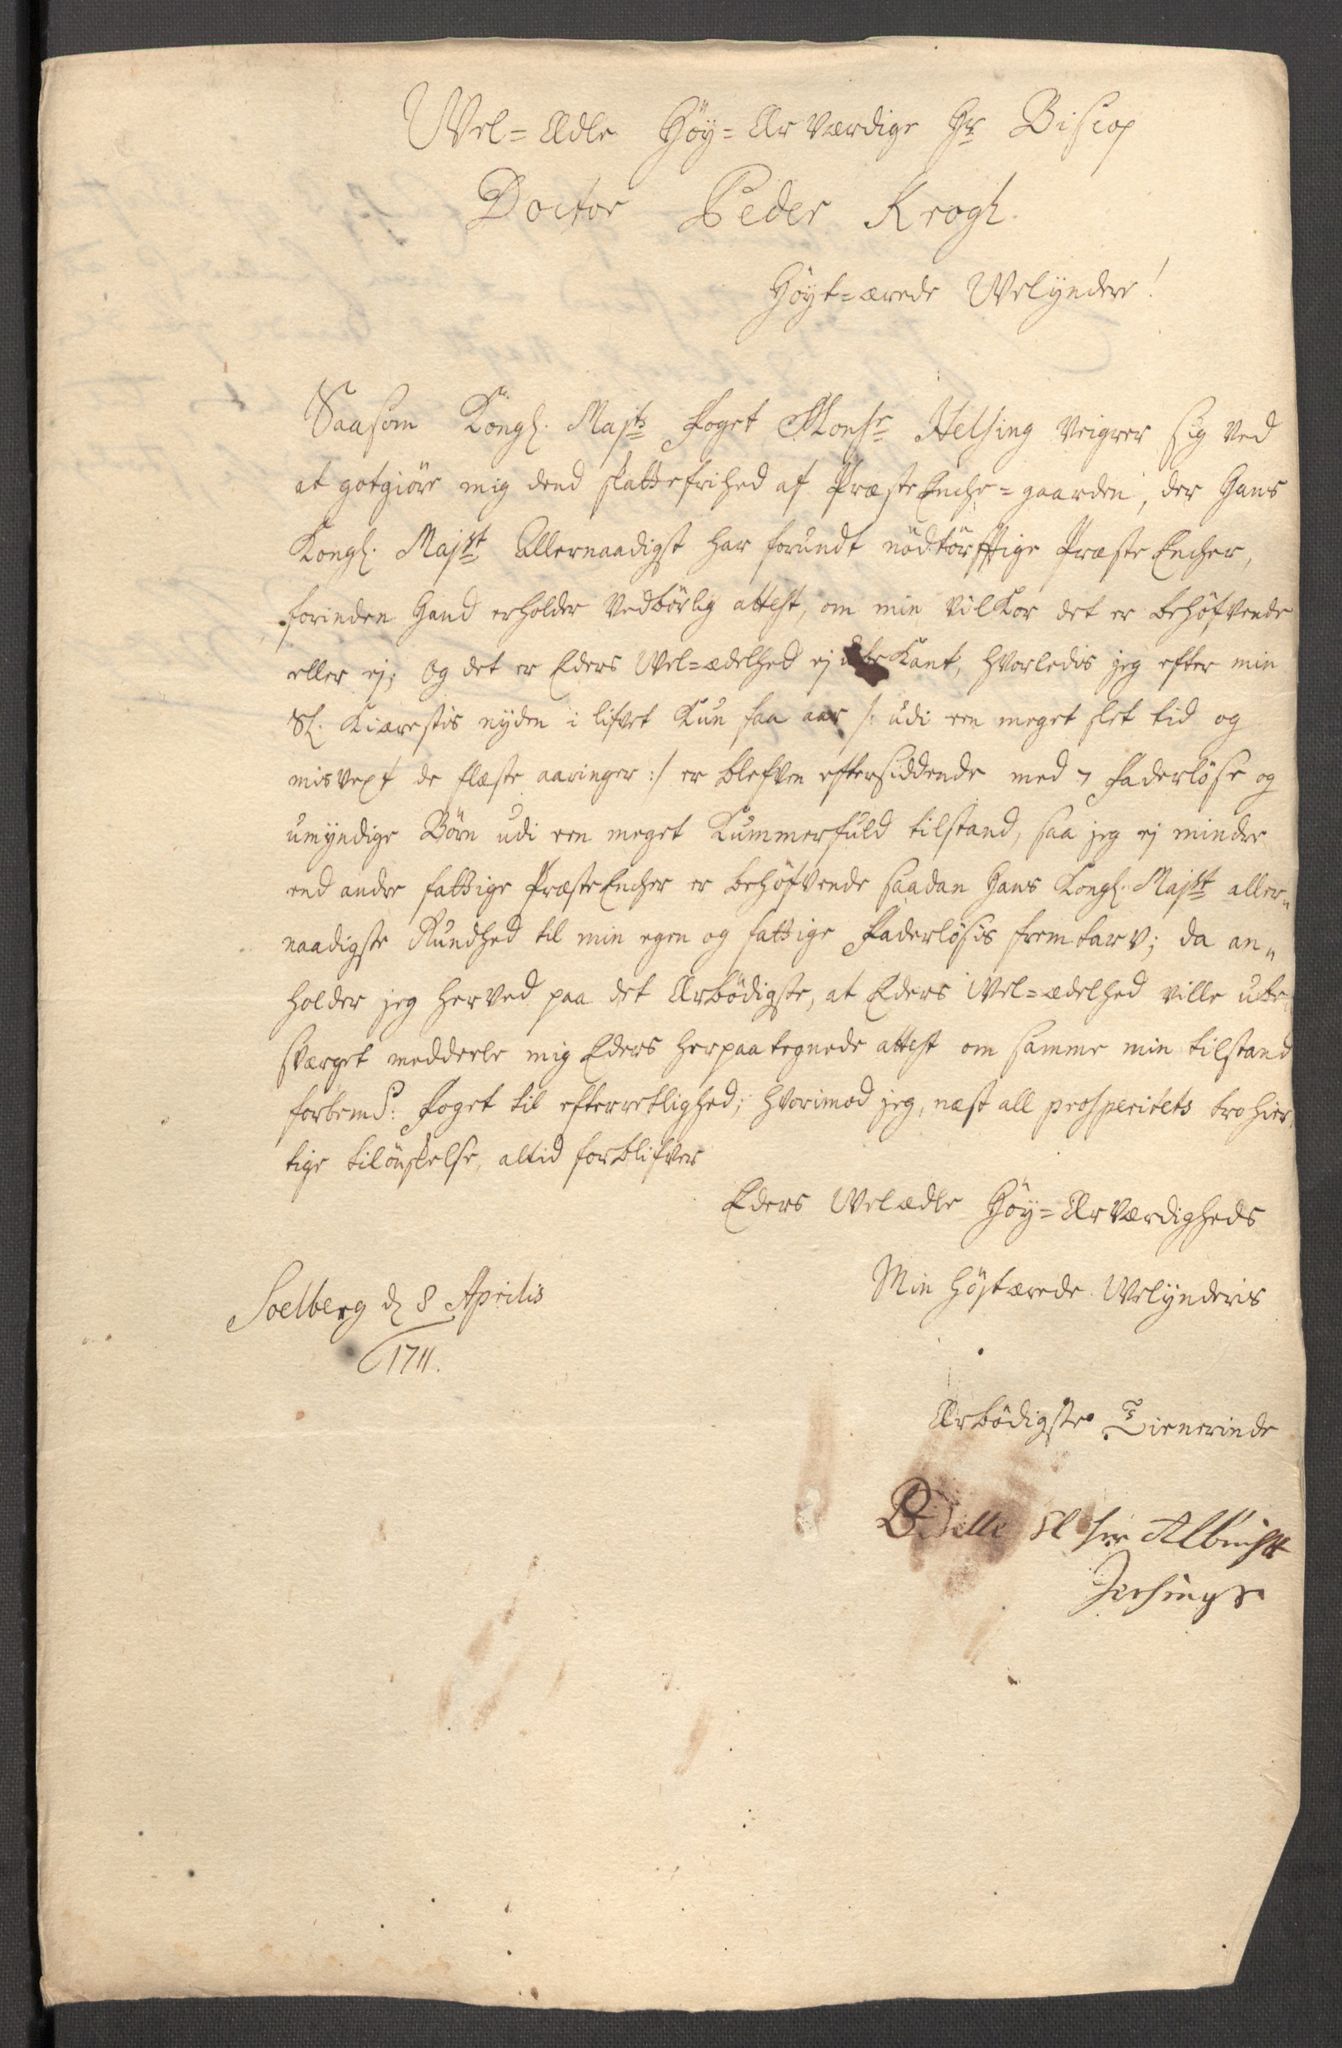 Wel=Ædle Høy=Ær Værdige Hr Biscop
Doctor Peder Krogh.
Høyt=ærede Welyndere!
Saasom Kongl. Majts Foget Monsr Helsing veigrer sig ved
at gotgiöre mig dend skattefrihed af Præste Enche=gaarden, der Hans
Kongl. Majstt Allernaadigst har forundt nödtörfftige Præste Encher,
forinden Hand erholder Vedbörlig attest, om min vilkor det er behöfvende
eller ej; og det er Eders Wel=ædelhed ej ubekant, hvorledis jeg efter min
Sl. Kiærestis nyden i lifvet kun faa aar /: udi een meget slet tid og
misvext de flæste aaringer :/ er blefven eftersiddende med 7 Faderlöse og
umyndige Börn udi een meget Kummerfuld tilstand, saa jeg ej mindre
end andre fattige Præste Encher er behöfvende saadan Hans Kongl. Majstt aller=
naadigste Gundhed til min egen og fattige Faderlösis fremtarv; da an=
holder jeg herved paa det Ærbödigste, at Eders Wel=ædelhed ville ube=
sværget meddeele mig Eders herpaa tegnede attest om samme min tilstand
forbemt: Foget til efterretlighed; hvorimod jeg, næst all prosperitets trohier,
tige tilönskelse, altid forblifver
Eders Welædle Höy=Ær Værdigheds
Min höjtærede Welynderis
Soelberg d 8 Aprilis
1711.
Ærbödigste Tienerinde
Sl her Albricht